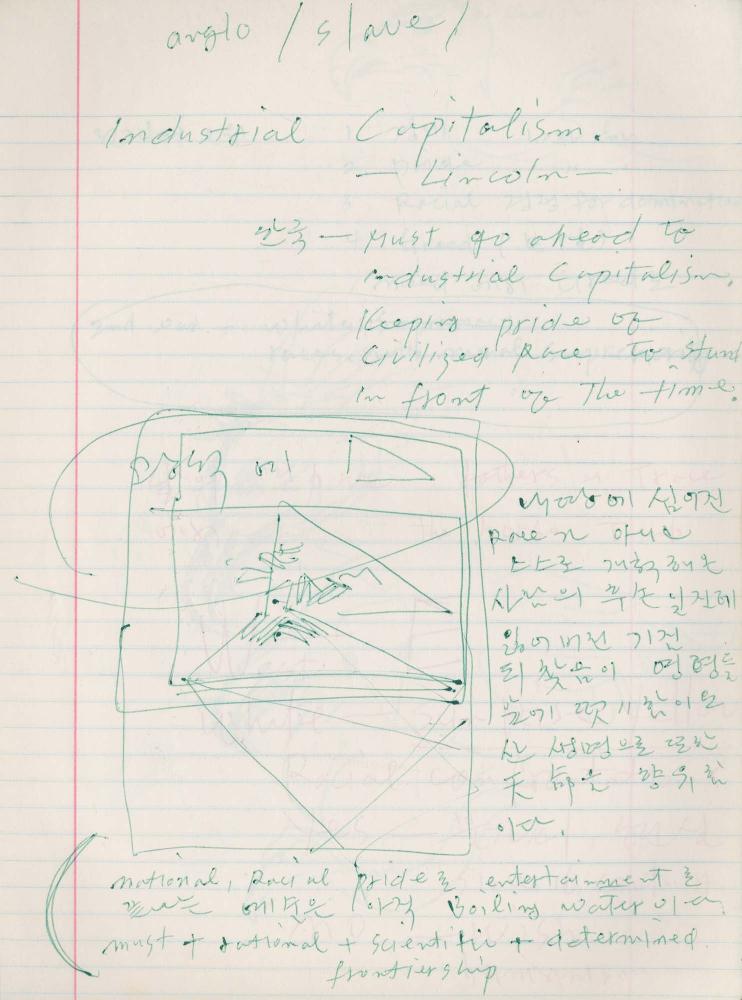 anglo / slave /
Industrial Capitalism.
— Lincoln —
한국 — Must go ahead to
industrial Capitalism.
Keeping pride of
Civilized Race to stand
in front of The time.
에
내땅에 심어진
Race가 아니고
스스로 개척해온
사람의 푸른 일진데
잃어버린 기질
되찾음이
산 생명으로 또한
天命을 향유함
이다.
national, Racial pride로 entertainment로
끝나는 예술은 아직 Boiling water이다
must + rational + scientific + determined
frontiership